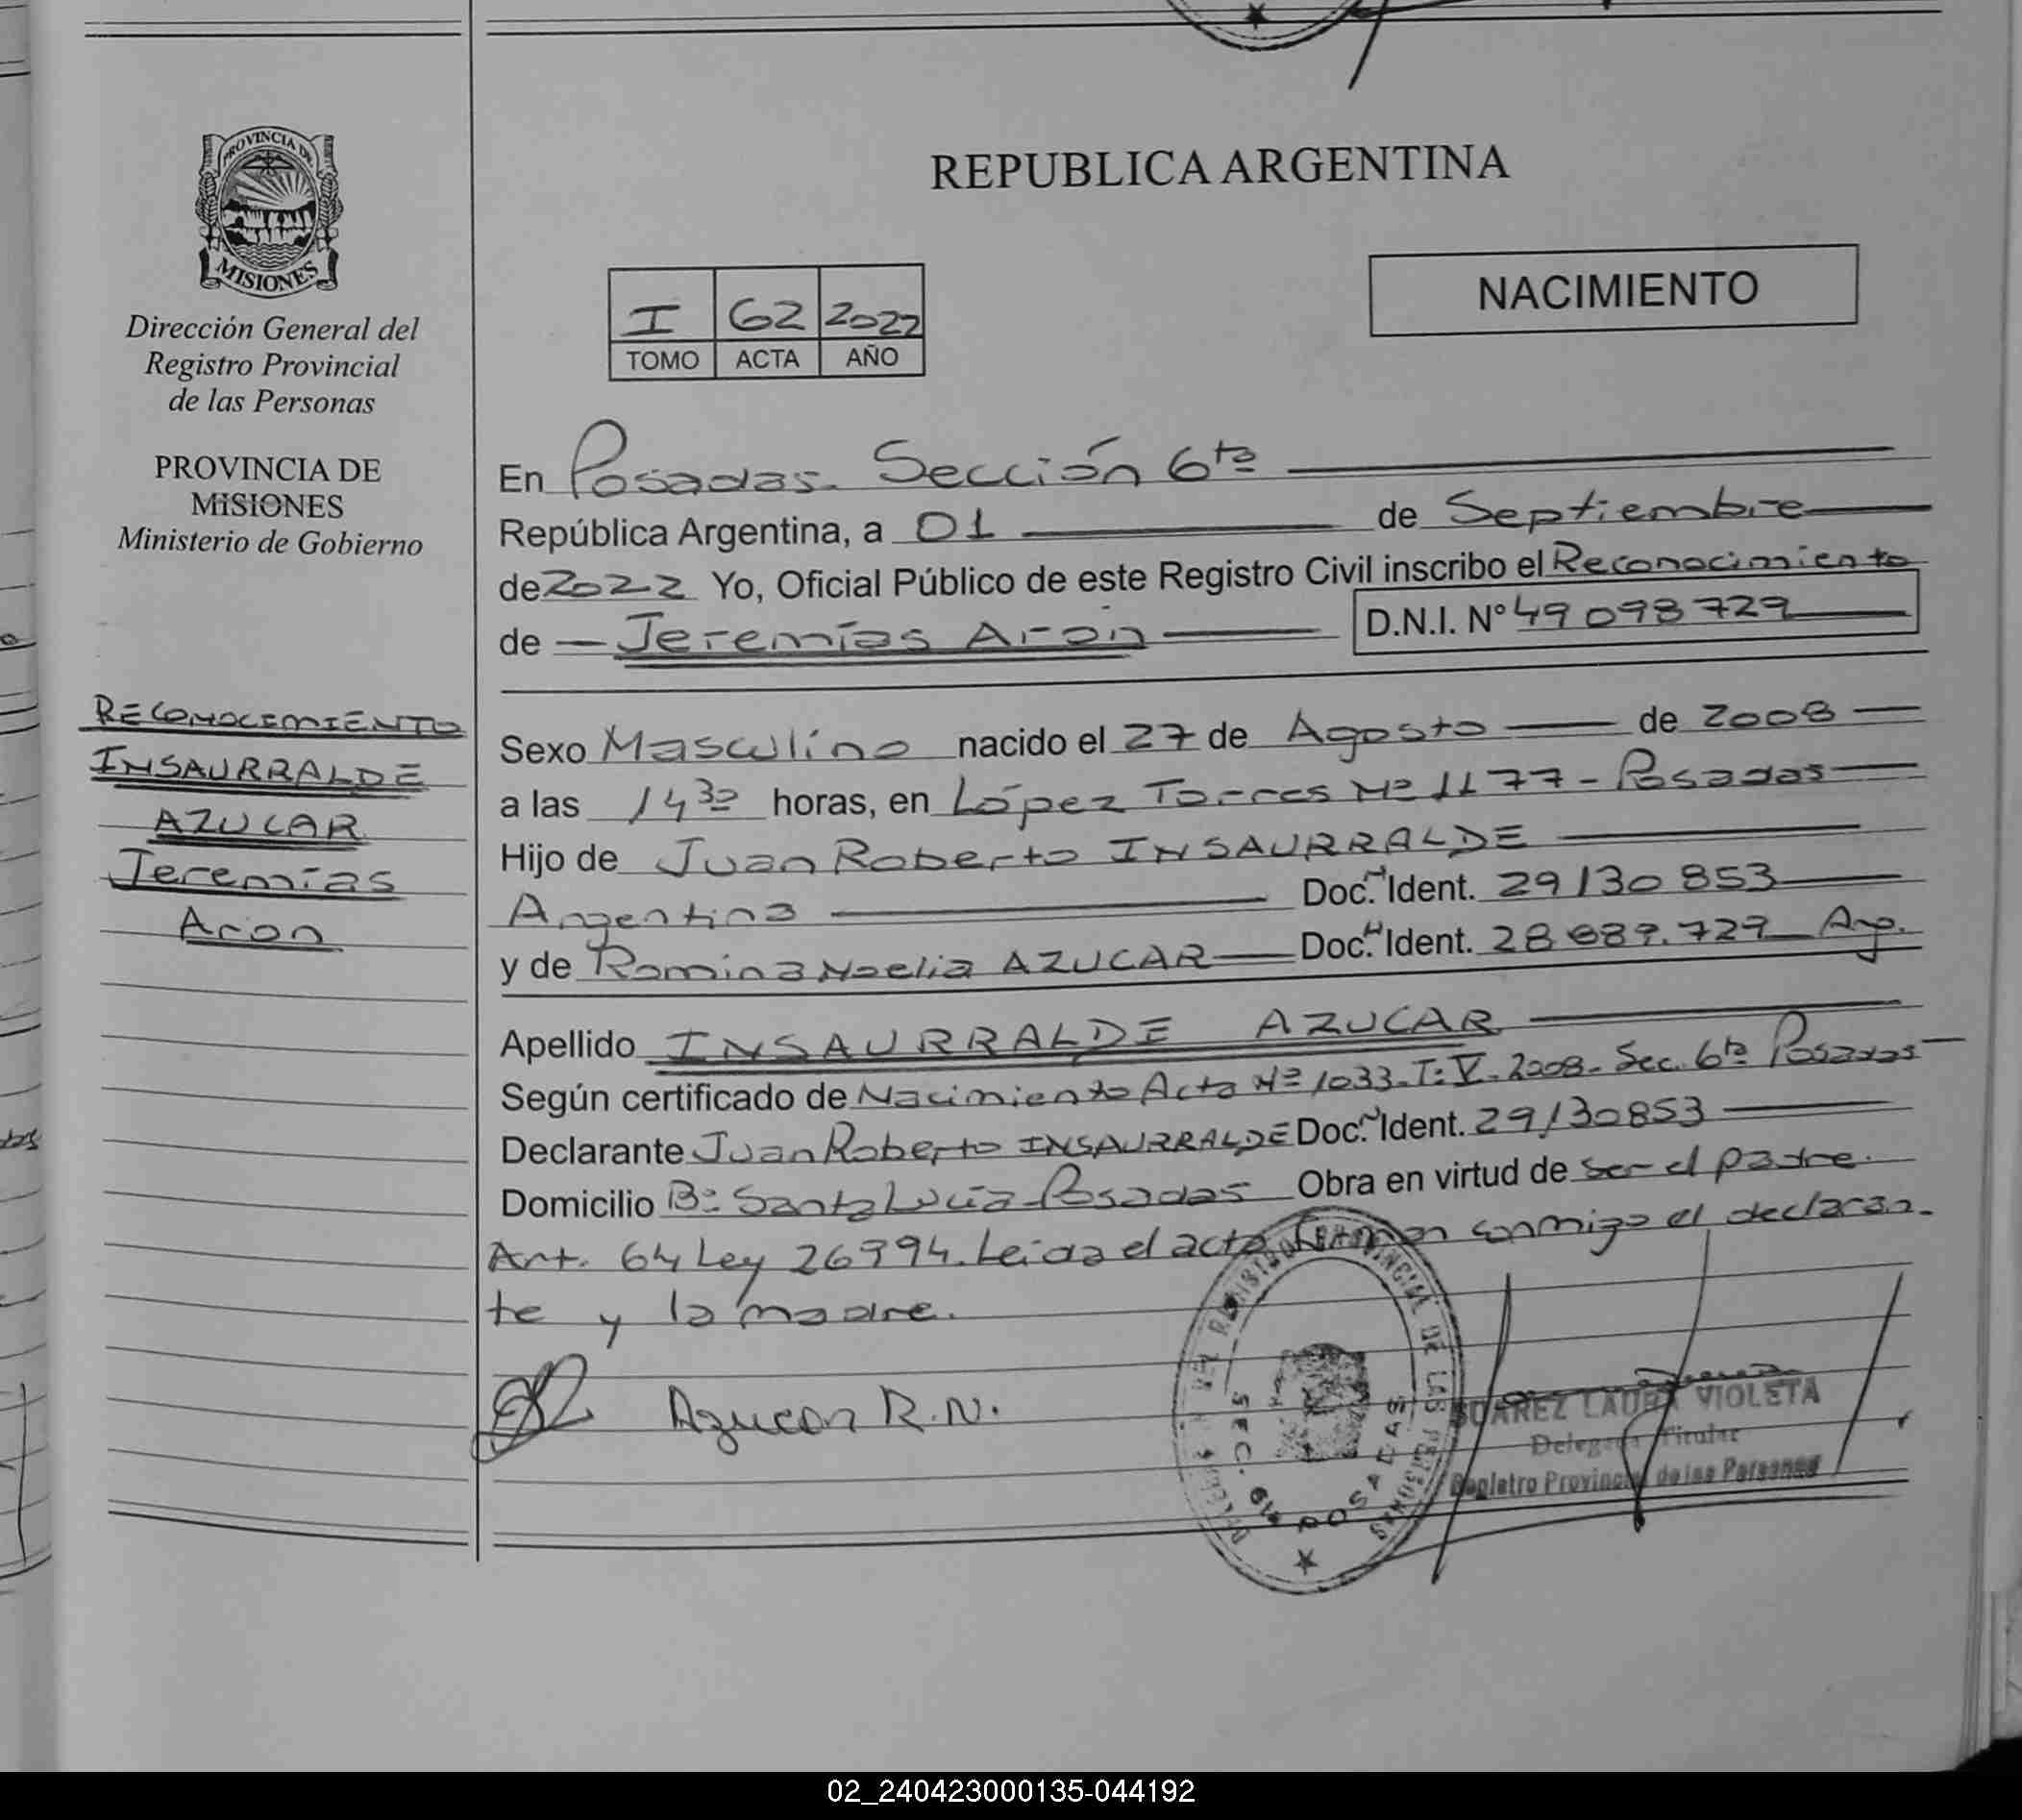 PROVINCIA DE
MISIONES
Dirección General del
Registro Provincial
de las Personas
PROVINCIA DE
MISIONES
Ministerio de Gobierno
RECONOCIMIENTO
INSAURRALDE
AZUCAR
Jeremías
Aron
REPUBLICA ARGENTINA
NACIMIENTO
I 62 2022
TOMO ACTA AÑO
En Posadas. Sección 6ta
República Argentina, a 01 de Septiembre
de 2022 Yo, Oficial Público de este Registro Civil inscribo el Reconocimiento
de Jeremías Aron D.N.I. N° 49 098 729
Sexo Masculino nacido el 27 de Agosto de 2008
a las 14 30 horas, en López Torres Nº 1177 - Posadas
Hijo de Juan Roberto INSAURRALDE
Argentina Doc. Ident. 29130 853
y de Romina Noelia AZUCAR Doc. Ident. 28 689.727 Arg.
Apellido INSAURRALDE AZUCAR
Según certificado de Nacimiento Acta Nº 1033-T: V. 2008. Sec. 6ta Posadas
Declarante Juan Roberto INSAURRALDE Doc. Ident. 29130853
Domicilio Bº Santa Lucía Posadas Obra en virtud de ser el padre.
Art. 64 Ley 26994. Leida el acta firman conmigo el declaran-
te y la madre.
Azucar R.N.
REGISTRO PROVINCIAL DE LAS PERSONAS
SEC. 6ta POSADAS
SUAREZ LAURA VIOLETA
Delegada Titular
Registro Provincial de las Personas
02_240423000135-044192